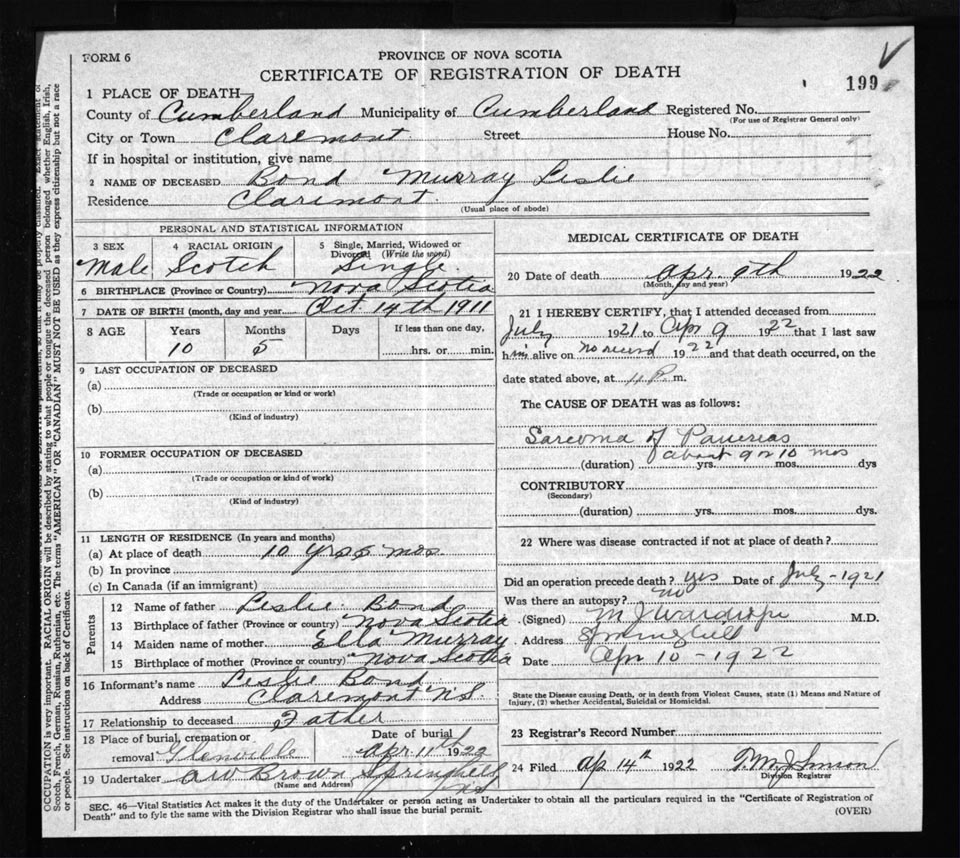 FORM 6
PROVINCE OF NOVA SCOTIA
CERTIFICATE OF REGISTRATION OF DEATH
199
1 PLACE OF DEATH—
County of Cumberland Municipality of Cumberland Registered No.
(For use of Registrar General only)
City or Town Claremont Street House No.
If in hospital or institution, give name
2 NAME OF DECEASED Bond Murray Leslie
Residence Claremont.
(Usual place of abode)
PERSONAL AND STATISTICAL INFORMATION
3 SEX 4 RACIAL ORIGIN 5 Single, Married, Widowed or Divorced (Write the word)
Male Scotch Single
6 BIRTHPLACE (Province or Country) Nova Scotia
7 DATE OF BIRTH (month, day and year) Oct 14th 1911
8 AGE Years Months Days If less than one day,
10 5 hrs. or min.
9 LAST OCCUPATION OF DECEASED
(a)
(Trade or occupation or kind or work)
(b)
(Kind of industry)
10 FORMER OCCUPATION OF DECEASED
(a)
(Trade or occupation or kind of work)
(b)
(Kind of industry)
11 LENGTH OF RESIDENCE (In years and months)
(a) At place of death 10 yrs 5 mos
(b) In province
(c) In Canada (if an immigrant)
Parents
12 Name of father Leslie Bond
13 Birthplace of father (Province or country) Nova Scotia
14 Maiden name of mother Ella Murray
15 Birthplace of mother (Province or country) Nova Scotia
16 Informant's name Leslie Bond
Address Claremont N.S.
17 Relationship to deceased Father
18 Place of burial, cremation or Date of burial
removal Glenville Apr. 11th 1922
19 Undertaker A W Brown Springhill
(Name and Address) NS
MEDICAL CERTIFICATE OF DEATH
20 Date of death Apr. 9th 1922
(Month, day and year)
21 I HEREBY CERTIFY, that I attended deceased from
July 1921 to Apr 9 1922 that I last saw
him alive on no record 1922 and that death occurred, on the
date stated above, at 11 P. m.
The CAUSE OF DEATH was as follows:
Sarcoma of Pancreas
about 9 or 10 mos
(duration) yrs. mos. dys
CONTRIBUTORY
(Secondary)
(duration) yrs. mos. dys.
22 Where was disease contracted if not at place of death?
Did an operation precede death? yes Date of July - 1921
Was there an autopsy? no
(Signed) M J Wardrope M.D.
Address Springhill
Date Apr 10 - 1922
State the Disease causing Death, or in death from Violent Causes, state (1) Means and Nature of
Injury, (2) whether Accidental, Suicidal or Homicidal.
23 Registrar's Record Number
24 Filed Ap 14th 1922 T. M. Johnson
Division Registrar
SEC. 46—Vital Statistics Act makes it the duty of the Undertaker or person acting as Undertaker to obtain all the particulars required in the "Certificate of Registration of
Death" and to fyle the same with the Division Registrar who shall issue the burial permit.
(OVER)
OCCUPATION is very important. RACIAL ORIGIN will be described by stating to what people or tongue the deceased person belonged whether English, Irish,
Scotch, French, German, Russian, Ruthenian, etc. The terms "AMERICAN" OR "CANADIAN" MUST NOT BE USED as they express citizenship but not a race
or people. See instructions on back of Certificate.